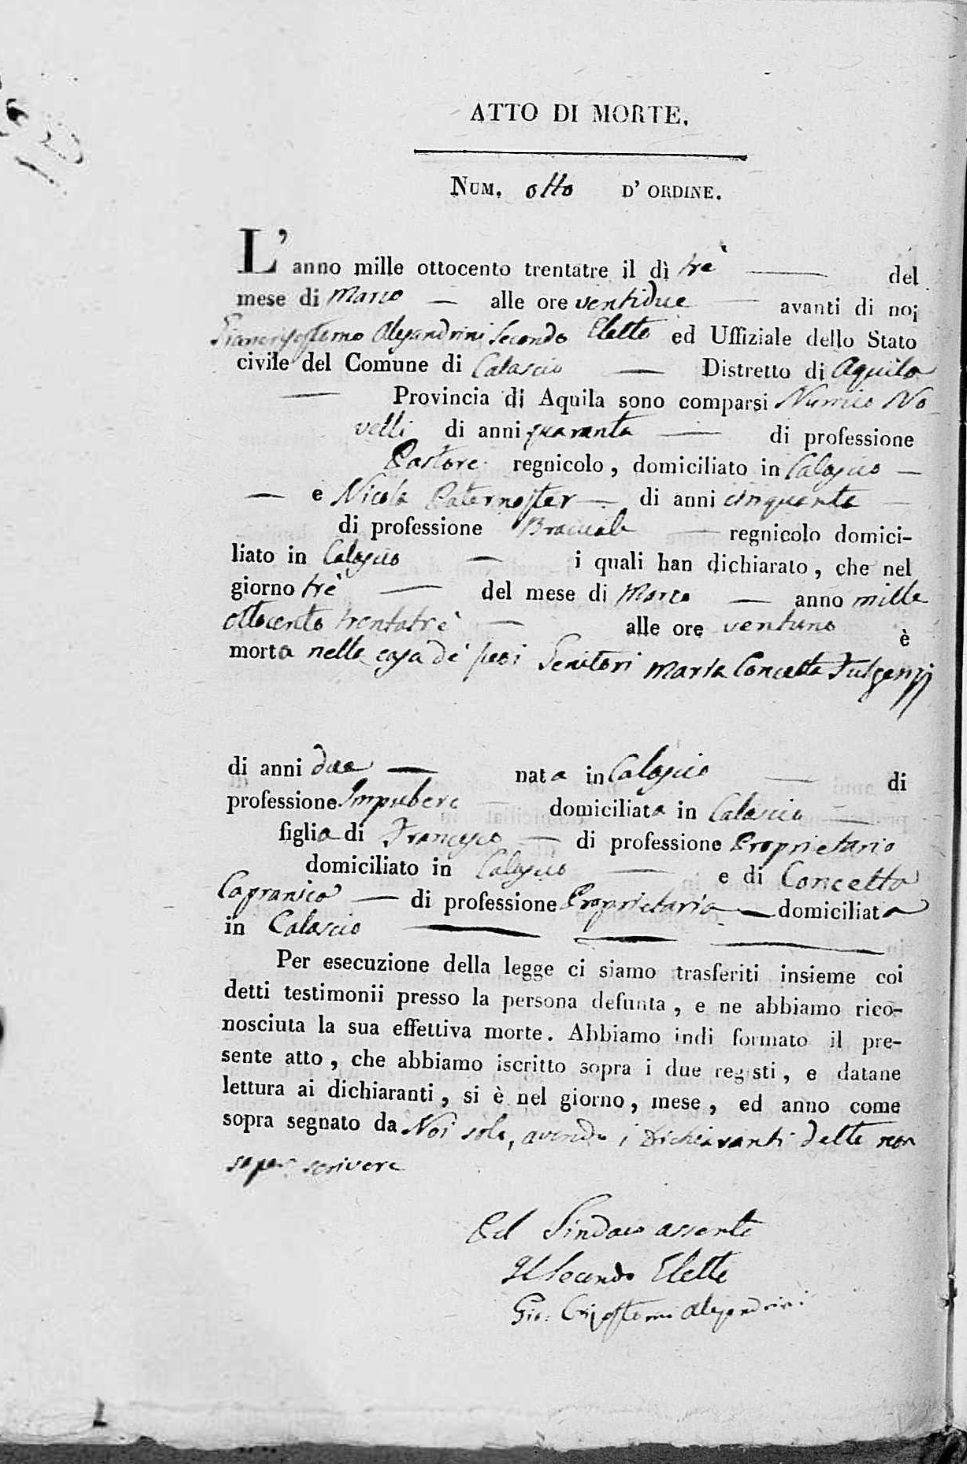 ATTO DI MORTE.
NUM. otto D' ORDINE.
L' anno mille ottocento trentatre il dì trè del
mese di Marzo alle ore ventidue avanti di noi
Giancrisostomo Alesandrini Secondo Eletto ed Uffiziale dello Stato
civile del Comune di Calascio Distretto di Aquila
Provincia di Aquila sono comparsi No-
velli di anni quaranta di professione
Pastore regnicolo, domiciliato in Calascio
e Nicola Paternoster di anni cinquanta
di professione Bracciale regnicolo domici-
liato in Calascio i quali han dichiarato, che nel
giorno trè del mese di Marzo anno mille
ottocento trentatrè alle ore ventuno è
morta nella casa de' suoi Genitori Maria Concetta Fulgenzj
di anni due nata in Calascio di
professione Impubere domiciliata in Calascio
figlia di Francesco di professione Proprietario
domiciliato in Calascio e di Concetta
Capranica di professione Proprietaria domiciliata
in Calascio
Per esecuzione della legge ci siamo trasferiti insieme coi
detti testimonii presso la persona defunta, e ne abbiamo rico-
nosciuta la sua effettiva morte. Abbiamo indi formato il pre-
sente atto, che abbiamo iscritto sopra i due registi, e datane
lettura ai dichiaranti, si è nel giorno, mese, ed anno come
sopra segnato da Noi solo, avendo i Dichiaranti detto non
saper scrivere
Pel Sindaco assente
Il Secondo Eletto
Gio: Crisostomo Alesandrini